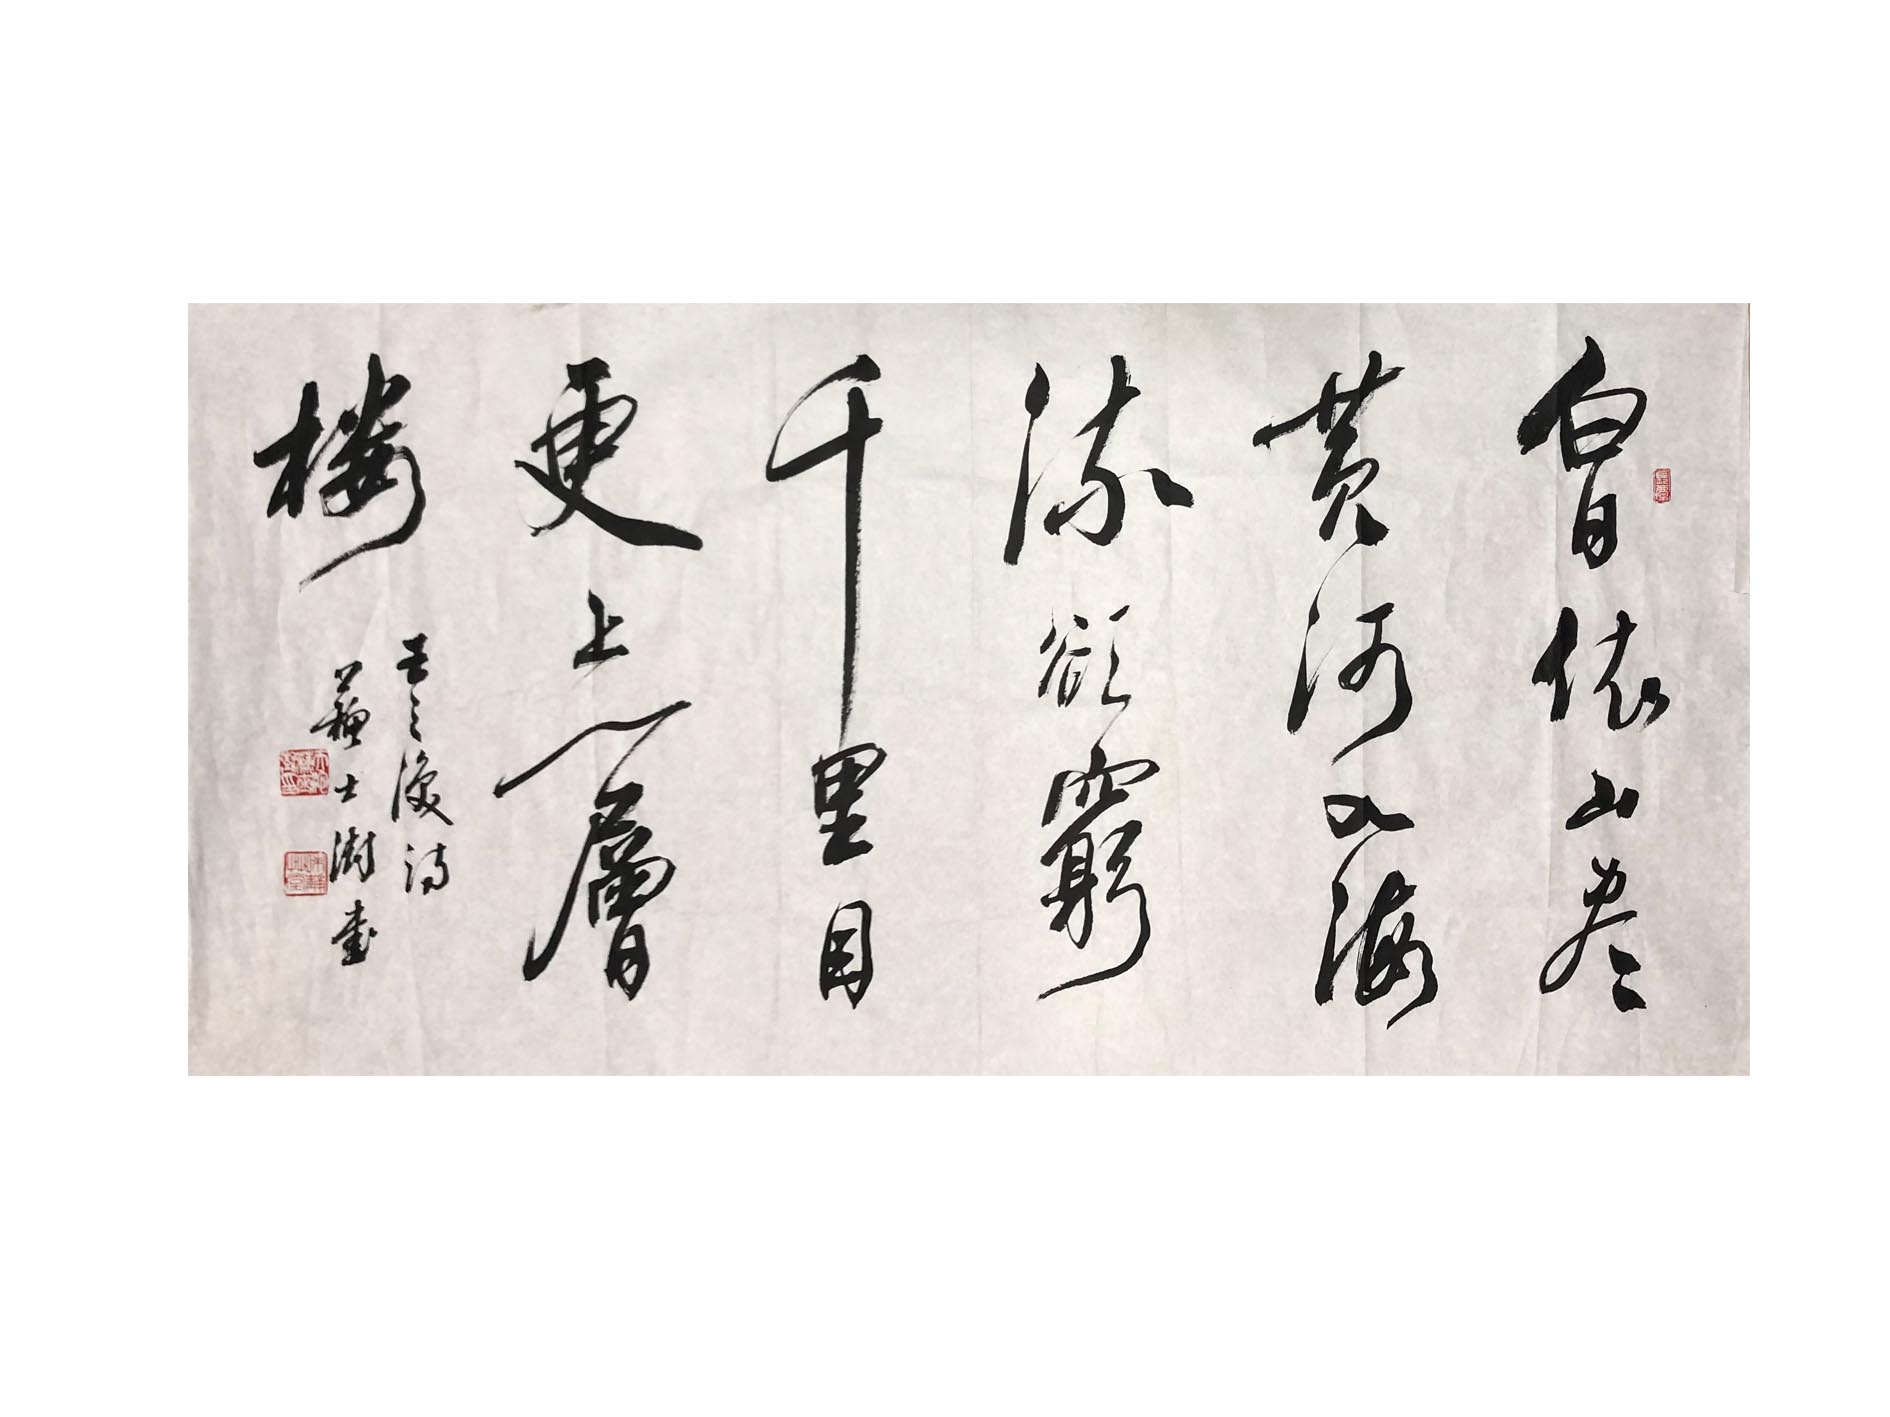 白日依山尽
黄河入海
流欲窮
千里目
更上一層
楼
王之渙诗
蘇士澍書